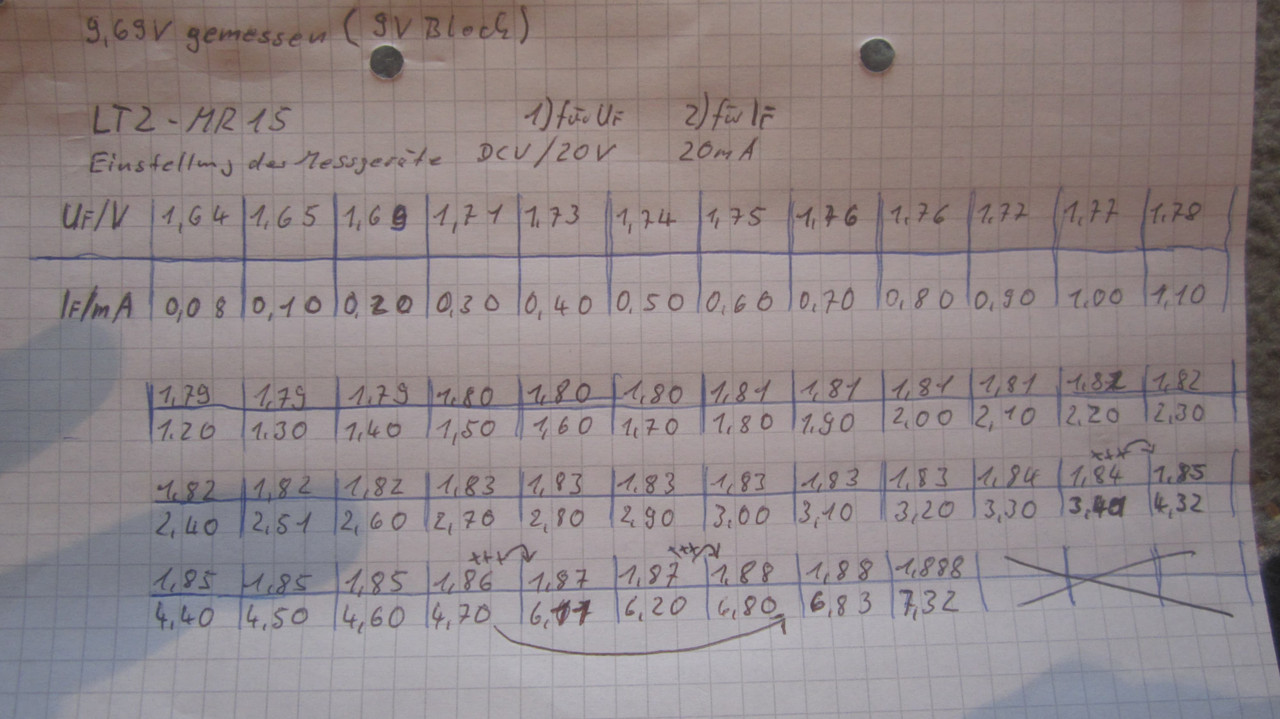 9,69V gemessen (9V Block)
LTZ-MR15 1) für UF 2) für IF
Einstellung des Messgeräte DCV/20V 20mA
UF/V 1,64 1,65 1,69 1,71 1,73 1,74 1,75 1,76 1,76 1,77 1,77 1,78
IF/mA 0,08 0,10 0,20 0,30 0,40 0,50 0,60 0,70 0,80 0,90 1,00 1,10
1,79 1,79 1,79 1,80 1,80 1,80 1,81 1,81 1,81 1,81 1,82 1,82
1,20 1,30 1,40 1,50 1,60 1,70 1,80 1,90 2,00 2,10 2,20 2,30
***
1,82 1,82 1,82 1,83 1,83 1,83 1,83 1,83 1,83 1,84 1,84 1,85
2,40 2,51 2,60 2,70 2,80 2,90 3,00 3,10 3,20 3,30 4,32
*** ***
1,85 1,85 1,85 1,86 1,87 1,87 1,88 1,88 1,888
4,40 4,50 4,60 4,70 6,20 6,80 6,83 7,32